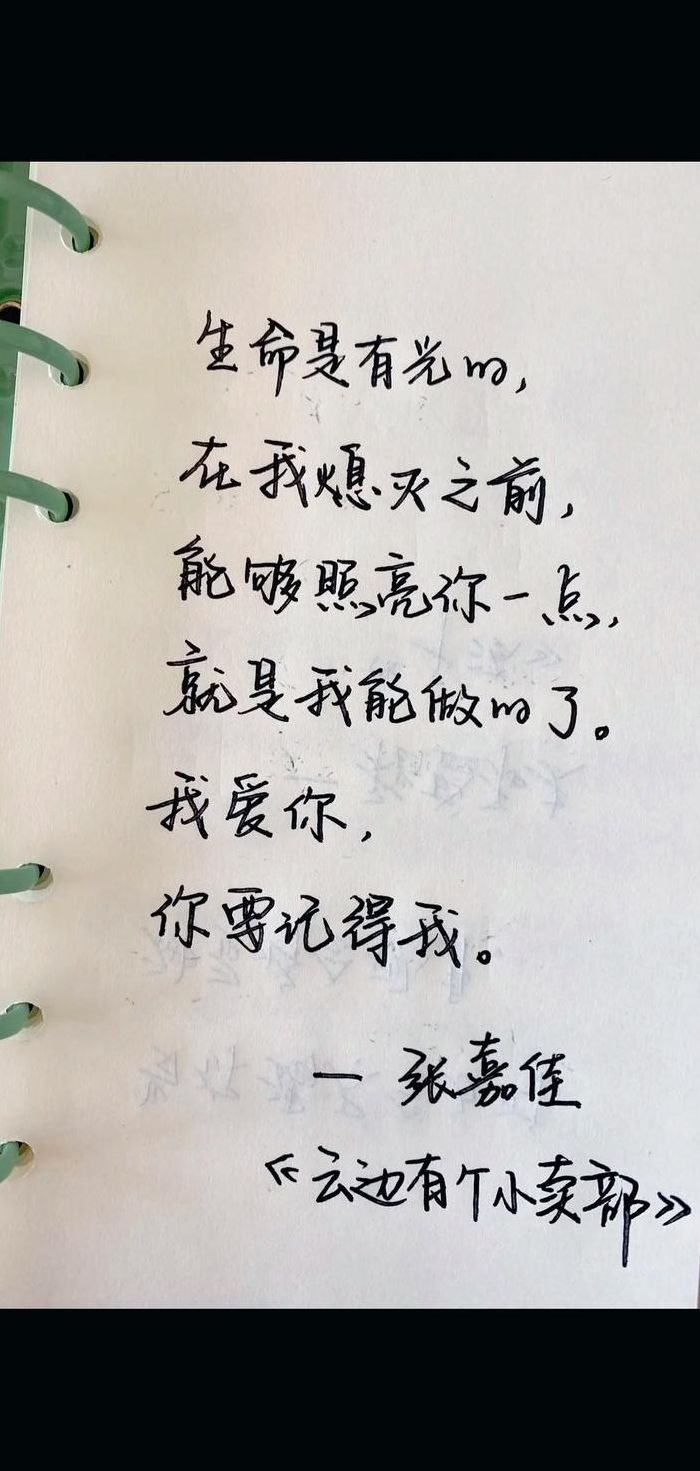 生命是有光的,
在我熄灭之前,
能够照亮你一点,
就是我能做的了。
我爱你,
你要记得我。
— 张嘉佳
《云边有个小卖部》